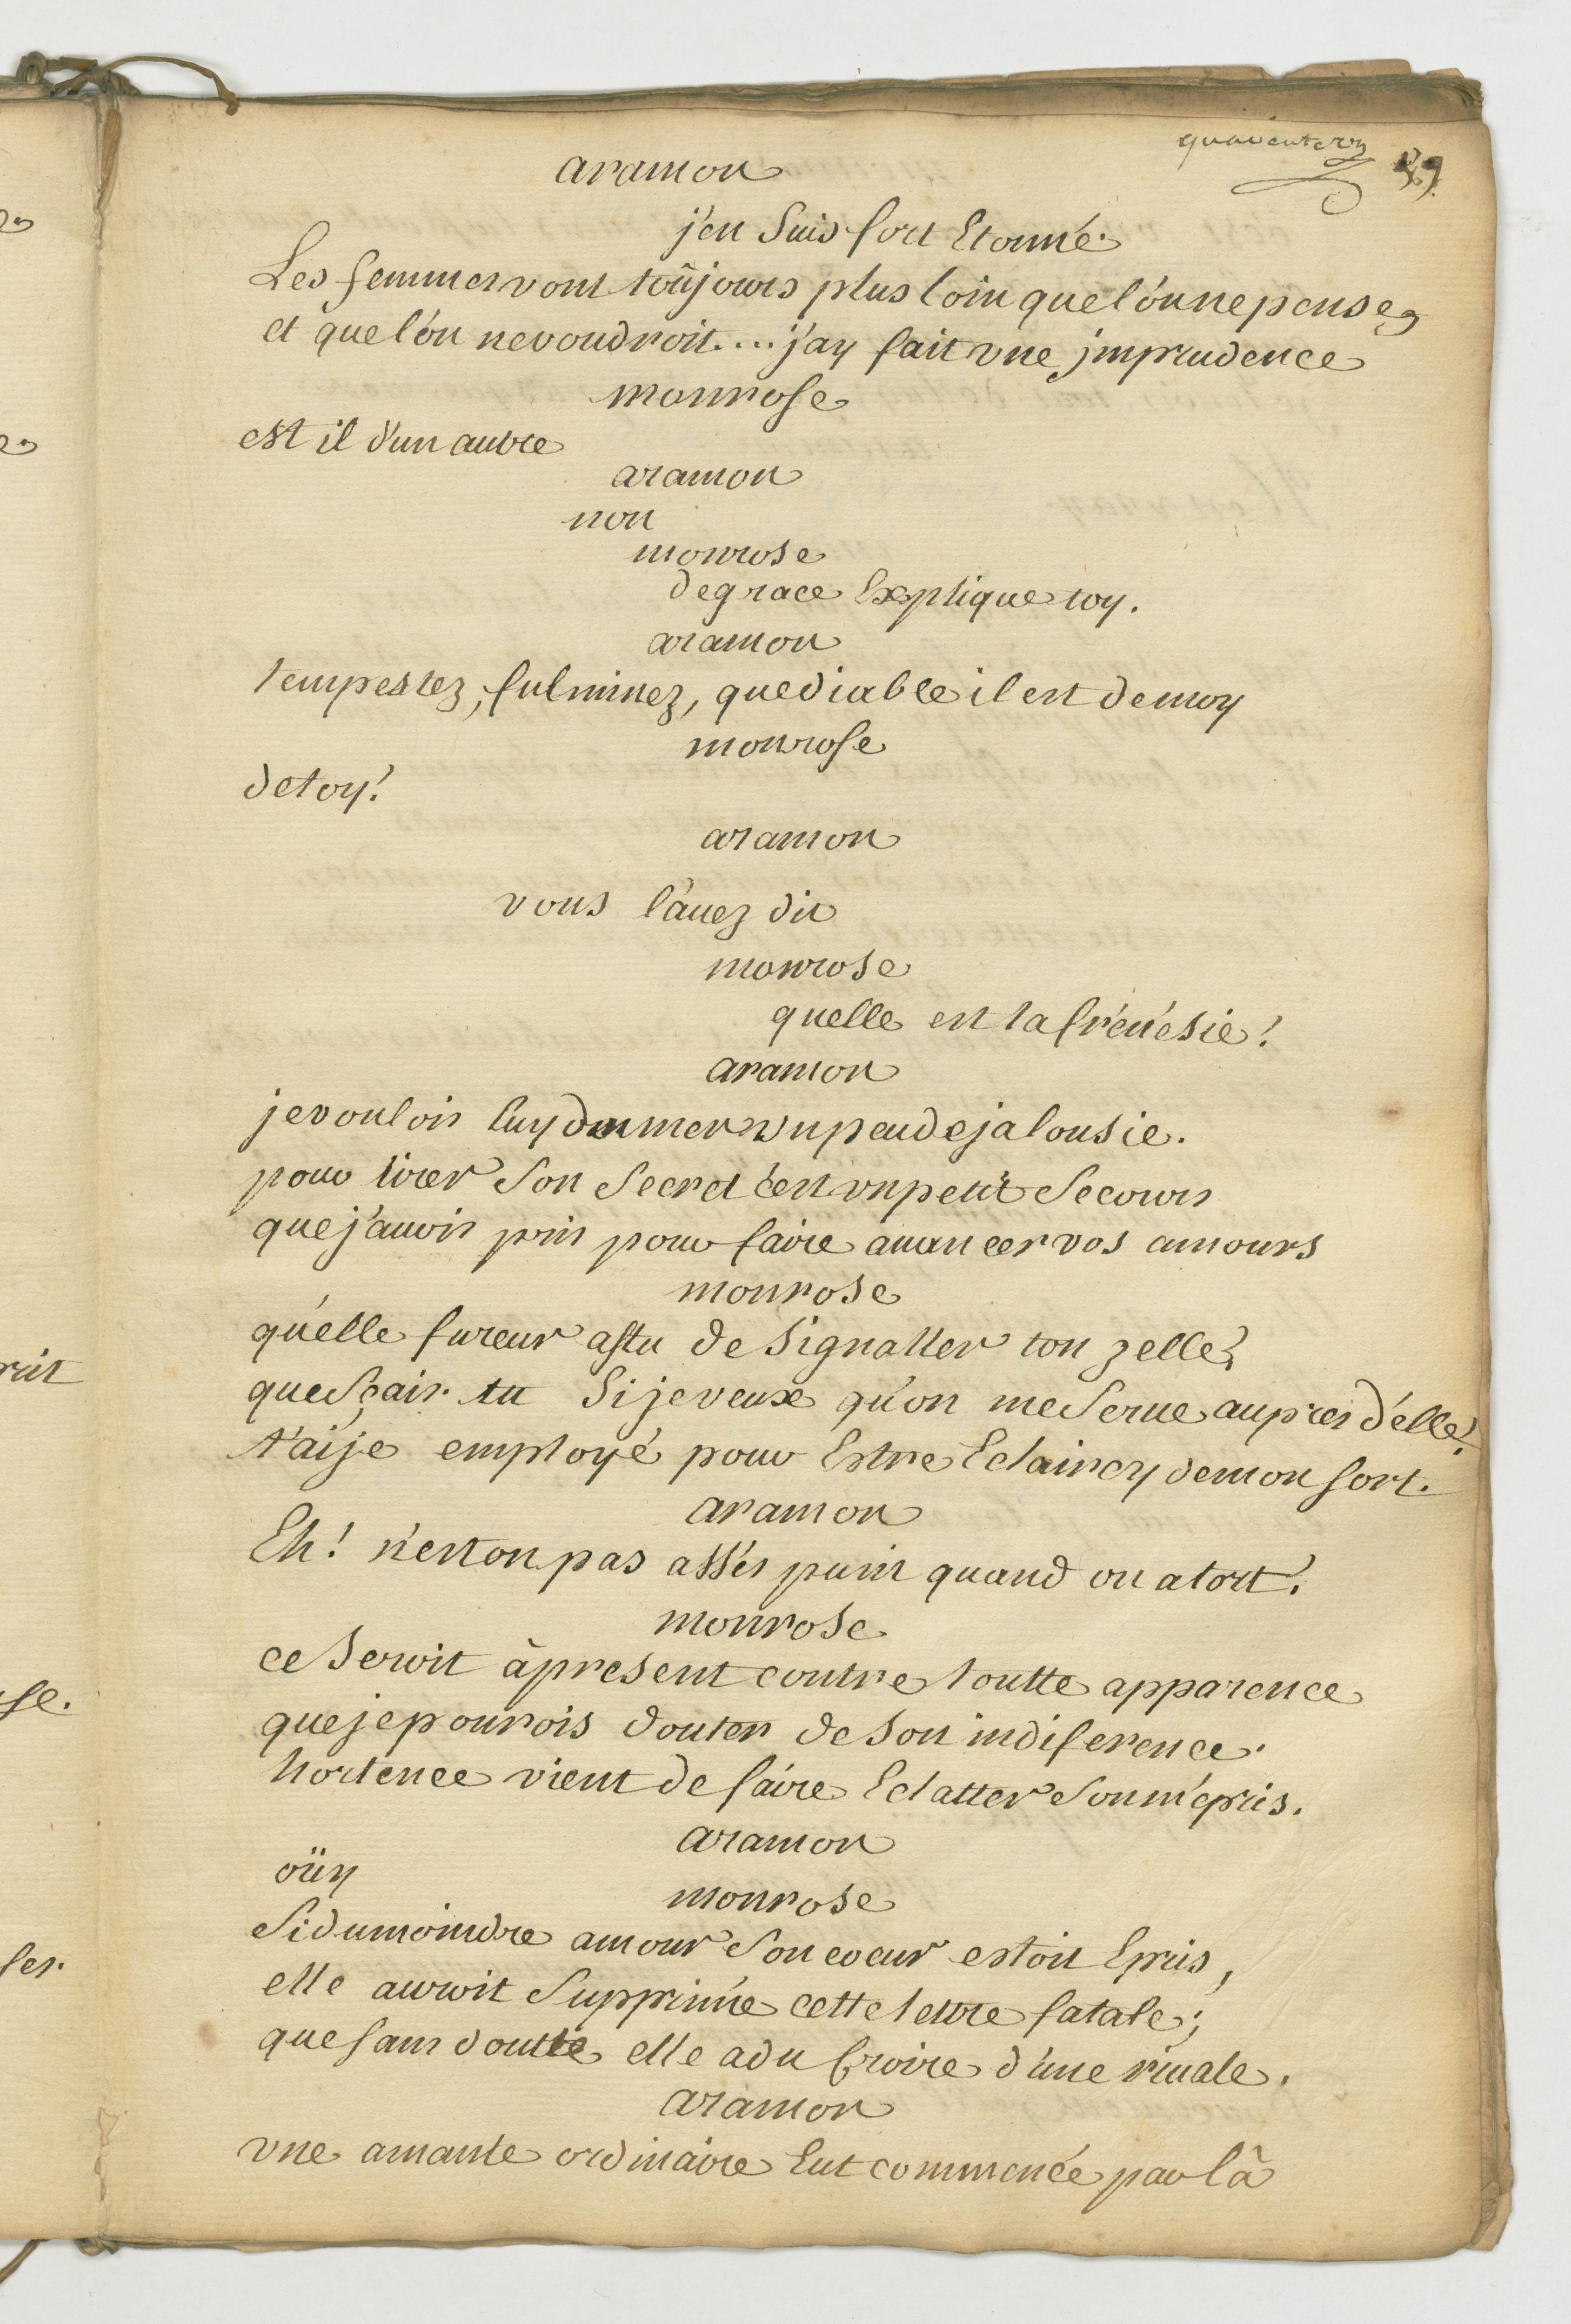 39.
aramon
j'en suis fort Etonné.
Les femmes vont toûjours plus loin que l'on ne pense,
et que l'on ne voudroit.... j'ay fait vne jmprudence
monrose
est il d'un autre
aramon
non
monrose
de grace Explique toy.
aramon
tempestez, fulminez, que diable il est de moy
monrose
de toy!
aramon
vous l'auez dit
monrose
quelle est ta frénésie!
aramon
je voulois luy donner vn peu de jalousie.
pour tirer son secret c'est vn petit secours
que j'auois pris pour faire auancer vos amours
monrose
qu'elle fureur astu de signaller ton zelle?
que sçais tu si je veux qu'on me serue aupres d'elle?
t'aije employé pour Estre Eclaircy de mon sort.
aramon
Eh! n'est on pas assés puni quand on a tort?
monrose
ce seroit à present contre toutte apparence
que je pourois douter de son indiference.
hortence vient de faire Eclatter son mépris.
aramon
oüy
monrose
si du moindre amour son coeur estoit Epris,
elle auroit supprimée cette lettre fatale;
que sans doutte elle a du croire d'une riuale.
aramon
vne amante ordinaire Eut commencée par là
rit
se.
ses.